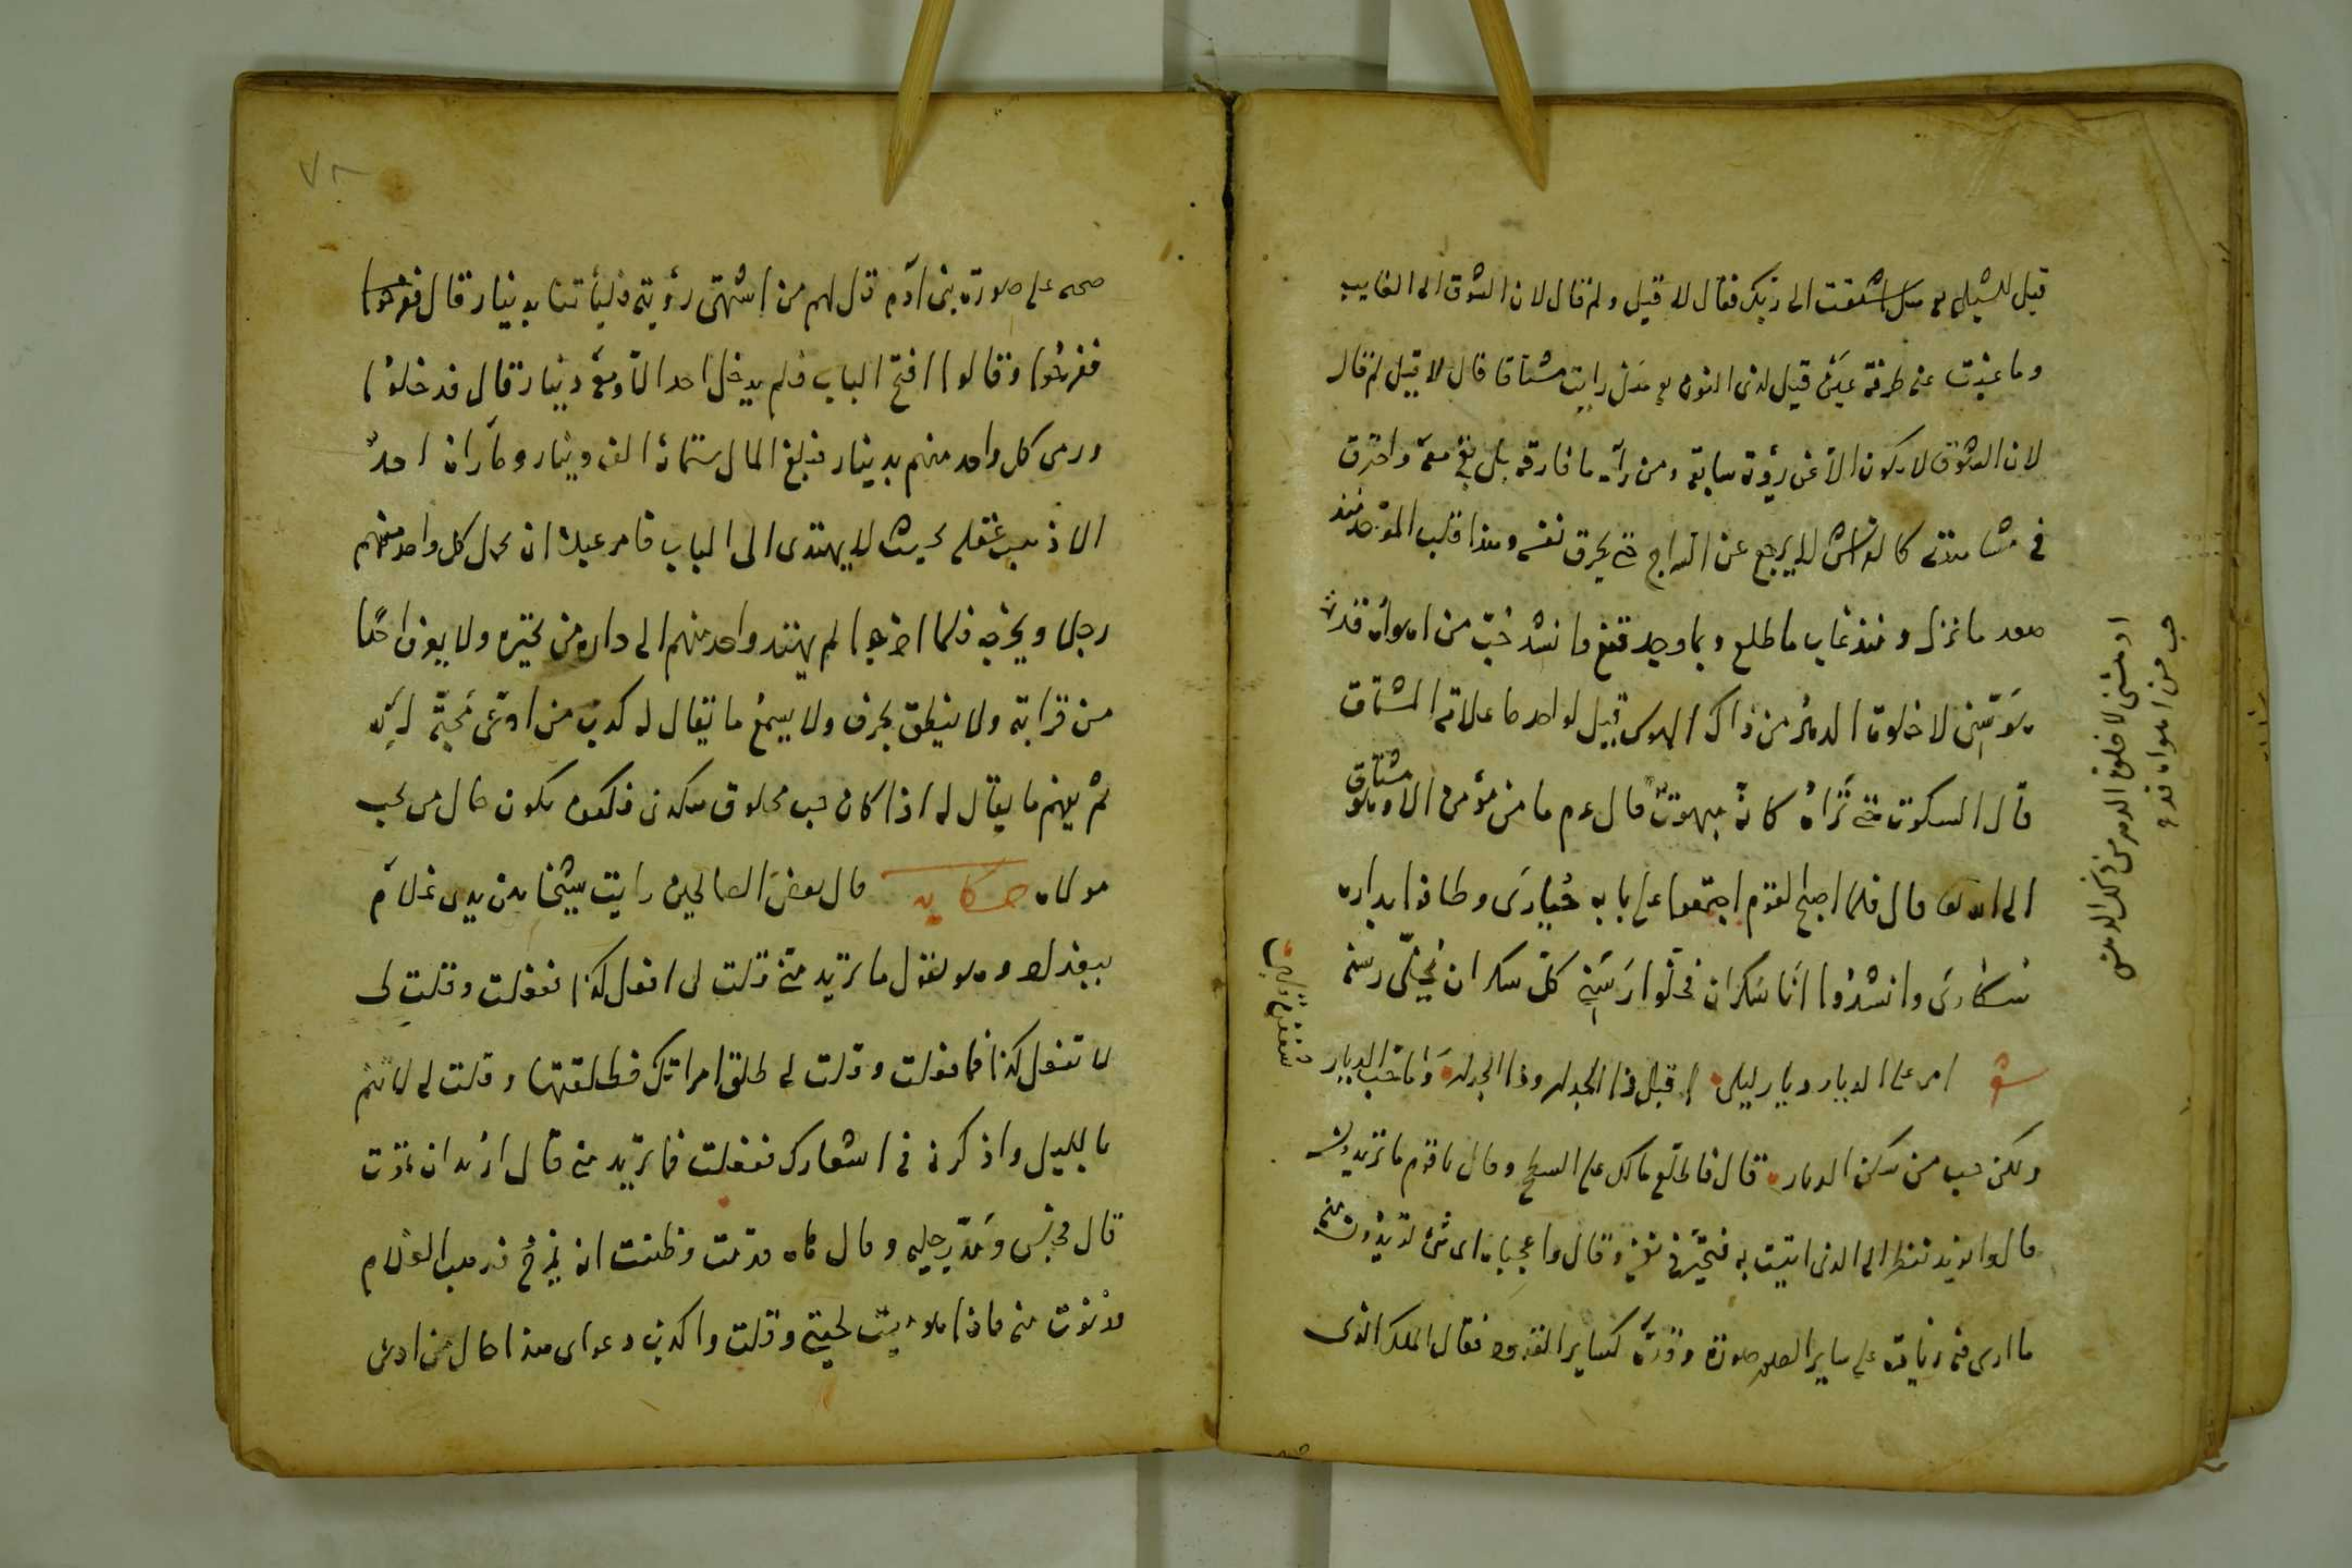 قيل للشبلي هل اشتقت الى ربك فقال لا قيل ولم قال لان الشوق الى الغايب
وما غبت عنه طرفة عين قيل لذى النون هل رايت مشتاقا قال لا قيل لم قال
لان الشوق لا يكون الا عن رؤية سابقة ومن رآه ما فارقه بل بقى معه واحترق
فى مشاهدته كالفراش لا يرجع عن السراج حتى يحرق نفسه وهذا قلب الموحد منذ
صعد ما نزل ومنذ غاب ما طلع وبما وجد قنع وانشد حب من اهواه قد
لا خلوت الدهر من ذاك الهوس قيل لواحد ما علامة المشتاق
قال السكوت حتى تراه كانه مبهوت قال عم ما من مؤمن الا وهو مشتاق
الى الله قال فلما اصبح القوم اجتمعوا على بابه حيارى وطافوا بداره
سكارى وانشدوا انا سكران فخلوا رسنى كل سكران يخلى رسنه
شعر امر على الديار ديار ليلى اقبل ذا الجدار وذا الجدار وما حب الديار
شغفن قلبى
ولكن حب من سكن الديار قال فاطلع مالك على السطح وقال يا قوم ما تريدون
قالوا نريد ننظر الى الذى اتيت به فتحير فى نفسه وقال واعجباه اى شئ تريدون منه
ما ارى فيه زيادة على ساير الصور صورة وقده كساير القدود فقال الملك الذى
ادهشنى لا خلوت الدهر من ذاك الدهش
حب من اهواه قد
٧٨
صحه على صورة بنى آدم قل لهم من اشتهى رؤيته فليأتنا بدينار قال
ففرحوا وقالوا افتح الباب فلم يدخل احد الا ومعه دينار قال فدخلوا
ورمى كل واحد منهم بدينار فبلغ المال ستمائة الف دينار وما راه احد
الا ذهب عقله بحيث لا يهتدى الى الباب فامر عبيده ان يحمل كل واحد منهم
رجل ويخرجه فلما اخرجوا لم يهتد واحد منهم الى داره من تحيره ولا يعرف احدا
من قرابته ولا ينطق بحرف ولا يسمع ما يقال له كذب من ادعى محبة الله
ثم يفهم ما يقال له اذا كان حب مخلوق هكذى فكيف يكون حال من يحب
مولاه حكاية قال بعض الصالحين رايت شيخا بين يدى غلام
ببغداد وهو يقول ما تريد منى قلت لى افعل كذا ففعلت وقلت لى
لا تفعل كذا فما فعلت وقلت لى طلق امراتك فطلقتها وقلت لى لا تنم
بالليل واذكرنى فى اشعارك ففعلت فما تريد منى قال اريد ان تموت
قال فجلس ومد رجليه وقال هاه قد مت وظننت انه يمزح فذهب الغلام
فدنوت منه فاذا هو ميت لحيتى وقلت واكذب دعواى هذا حال من ادعى